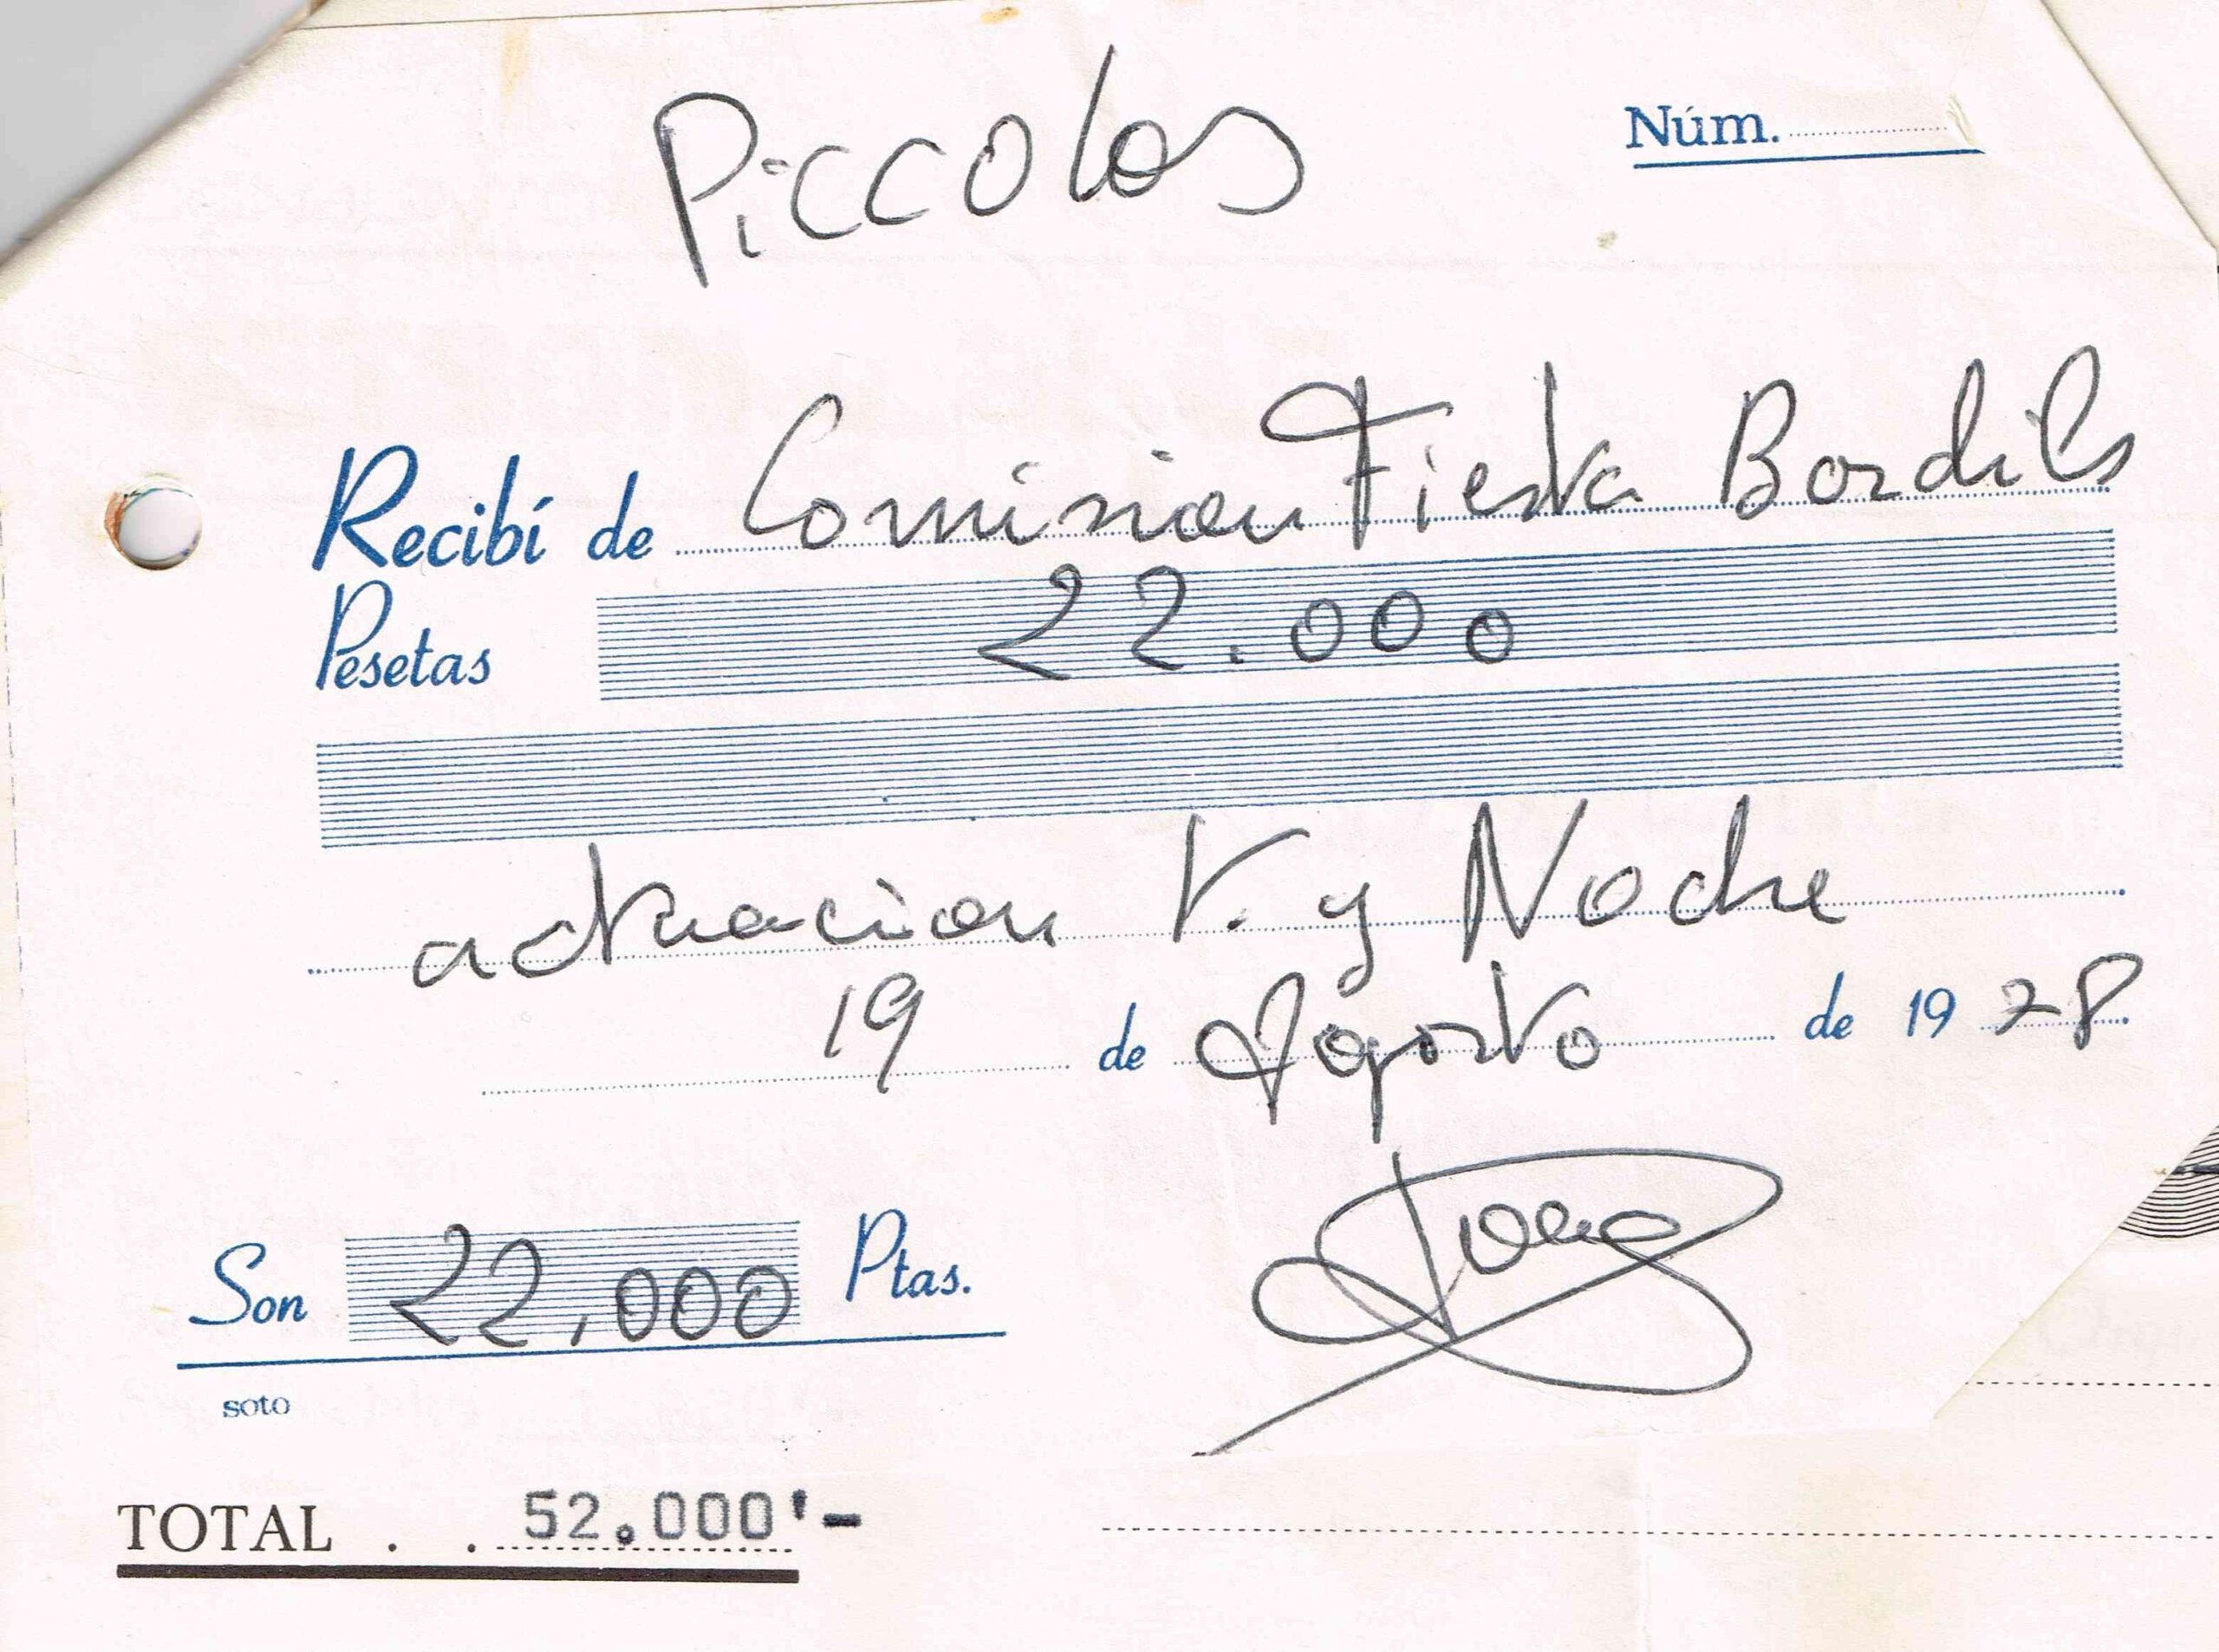 Piccolos
Núm.
Recibí de Comision Fiesta Bordils
Pesetas 22.000
actuacion T. y Noche
19 de Agosto de 1978
Son 22.000 Ptas.
soto
TOTAL . . 52.000'-